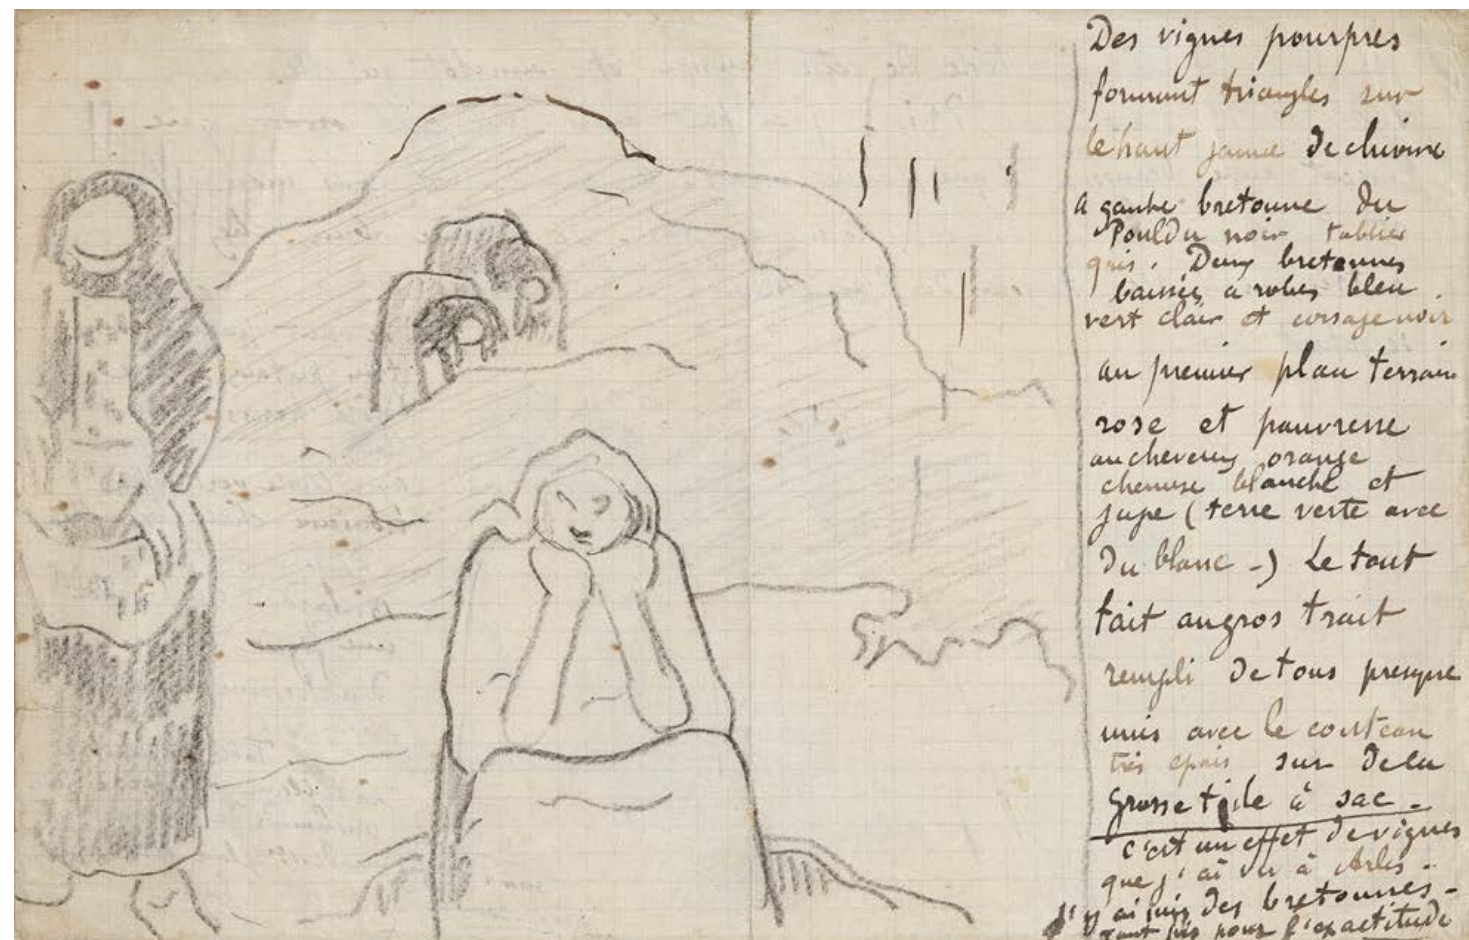 Des vignes pourpres
formant triangles sur
le haut jaune de chrome
a gauche bretonne du
Pouldu noir tablier
gris. Deux bretonnes
baissée à robes bleu
vert clair et corsage noir
au premier plan terrain
rose et pauvresse
au cheveux orange
chemise blanche et
jupe (terre verte avec
du blanc -) Le tout
fait au gros trait
rempli de tons presque
unis avec le couteau
très épais sur de la
grosse toile à sac -
c'est un effet de vignes
que j'ai vu à Arles -
J'y ai mis des bretonnes -
tant pis pour l'exactitude